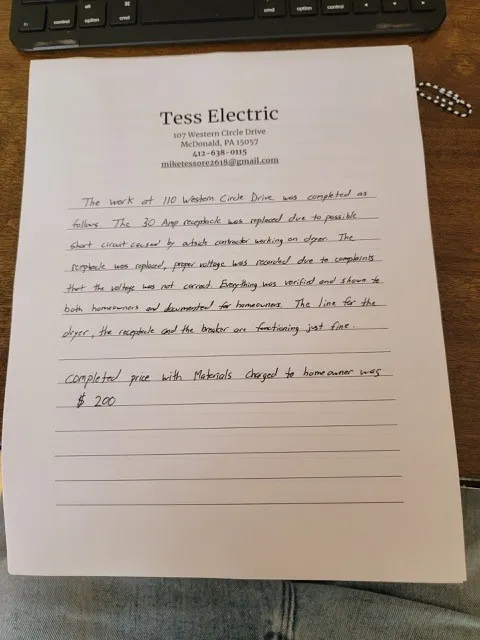 alt
cmd
cmd
option
control
Tess Electric
107 Western Circle Drive
McDonald, PA 15057
412-638-0115
miketessore2618@gmail.com
The work at 110 Western Circle Drive was completed as
follows. The 30 Amp receptacle was replaced due to possible
short circuit caused by outside contractor working on dryer. The
receptacle was replaced, proper voltage was recorded due to complaints
that the voltage was not correct. Everything was verified and shown to
both homeowners and documented for homeowners. The line for the
dryer, the receptacle and the breaker are functioning just fine.
Completed price with Materials charged to homeowner was
$ 200